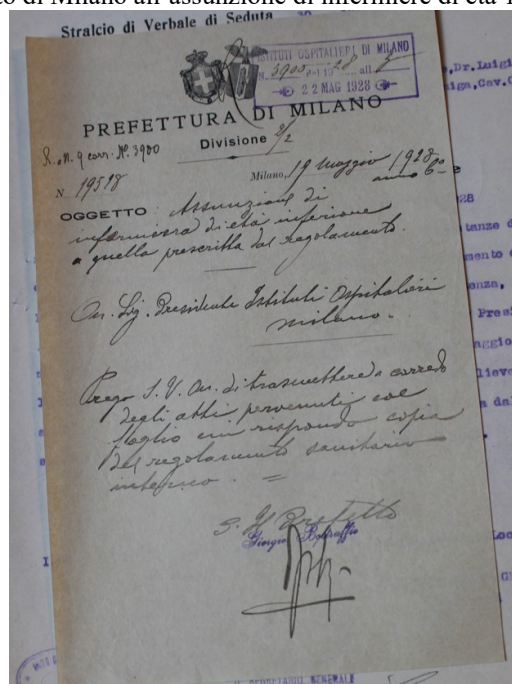 co di Milano all'assunzione di infermiere di età
Stralcio di Verbale di Seduta
ISTITUTI OSPITALIERI DI MILANO
N. 3900 del 1928 all
22 MAG 1928
,Dr.Luigi
iga,Cav.
PREFETTURA DI MILANO
Divisione 2/2
N. 3900
N 19518
Milano, 19 Maggio 1928
anno 6º
OGGETTO Assunzione di
infermiera di età inferiore
a quella prescritta dal regolamento.
On. Sig. Presidente Istituti Ospitalieri
Milano.
Prego S. V. On. di trasmettere a corredo
degli atti pervenuti col
foglio cui rispondo copia
del regolamento sanitario
interno. =
Il Prefetto
Giorgio Boltraffio
28
tanze d
mento
enza,
Pres
aggio
lieve
a da
SEGRETARIO GENERALE